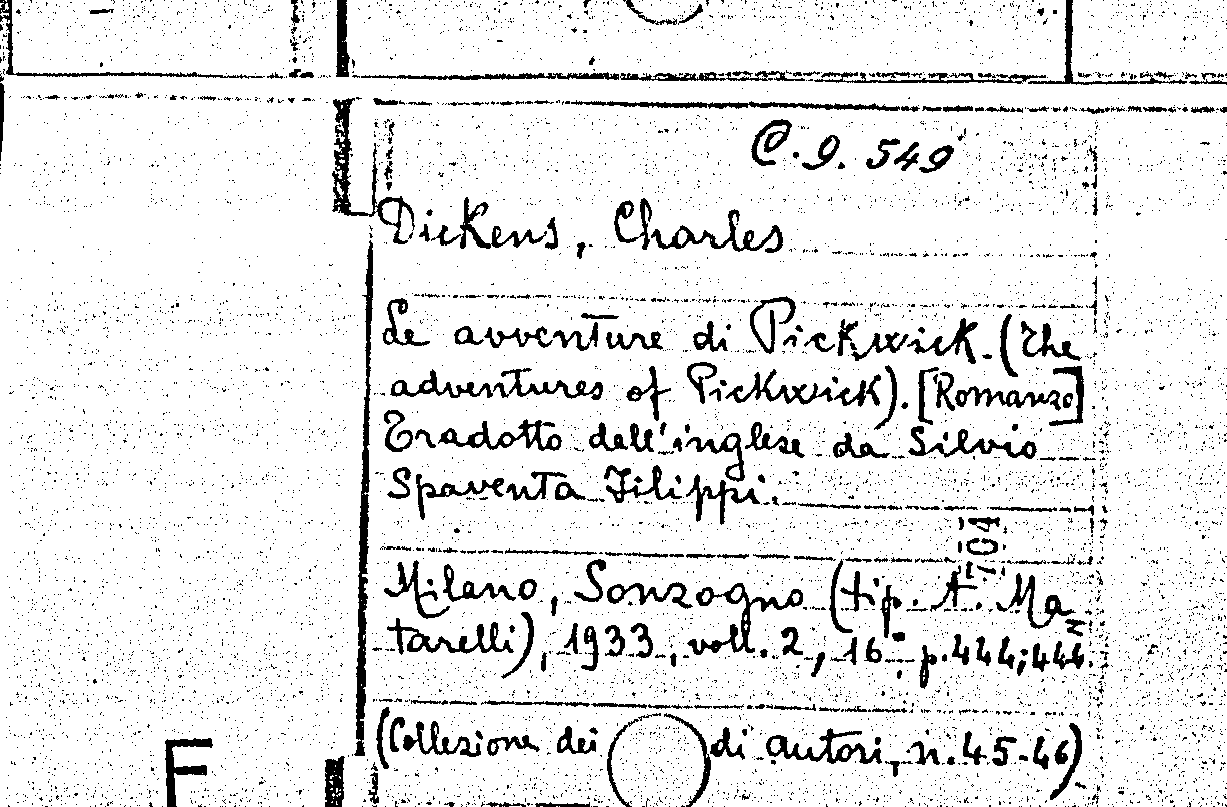 C. 9. 549
Dickens, Charles
Le avventure di Pickwick. (The
adventures of Pickwick). [Romanzo]
Tradotto dall'inglese da Silvio
Spaventa Filippi.
704
Milano, Sonzogno (tip. A. Ma
tarelli), 1933, voll. 2, 16° p. 444; 444.
(Collezione dei di autori, n. 45-46)
F